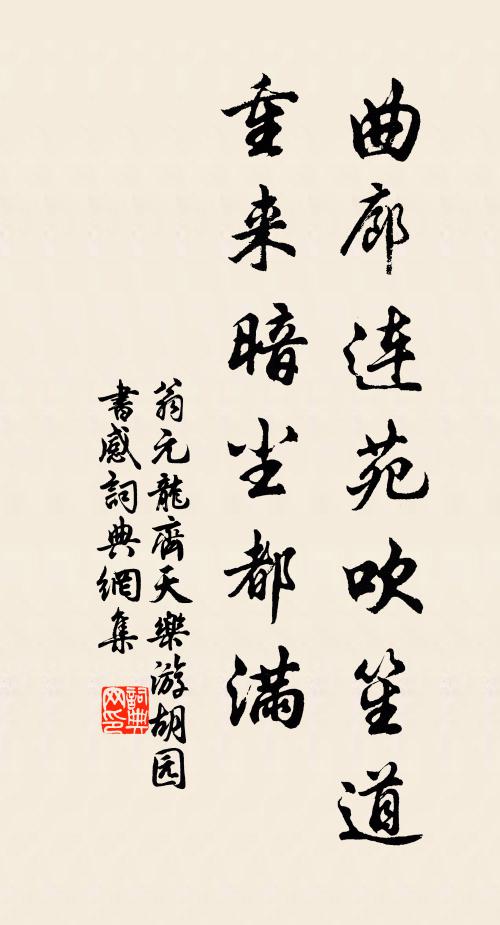 曲廊连苑吹笙道
重来暗尘都满
翁元龍齊天樂游胡园
書感詞典網集
詞典
网印